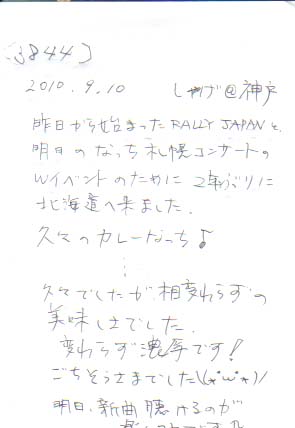 (3844)
2010.9.10 しゃけ@神戸
昨日から始まったRALLY JAPANと、
明日のなっち札幌コンサートの
Wイベントのために2年ぶりに
北海道へ来ました.
久々のカレーなっち♪
⋮
久々でしたが相変わらずの
美味しさでした.
変わらず濃厚です!
ごちそうさまでした\(*'ω'*)/
明日、新曲聴けるのが